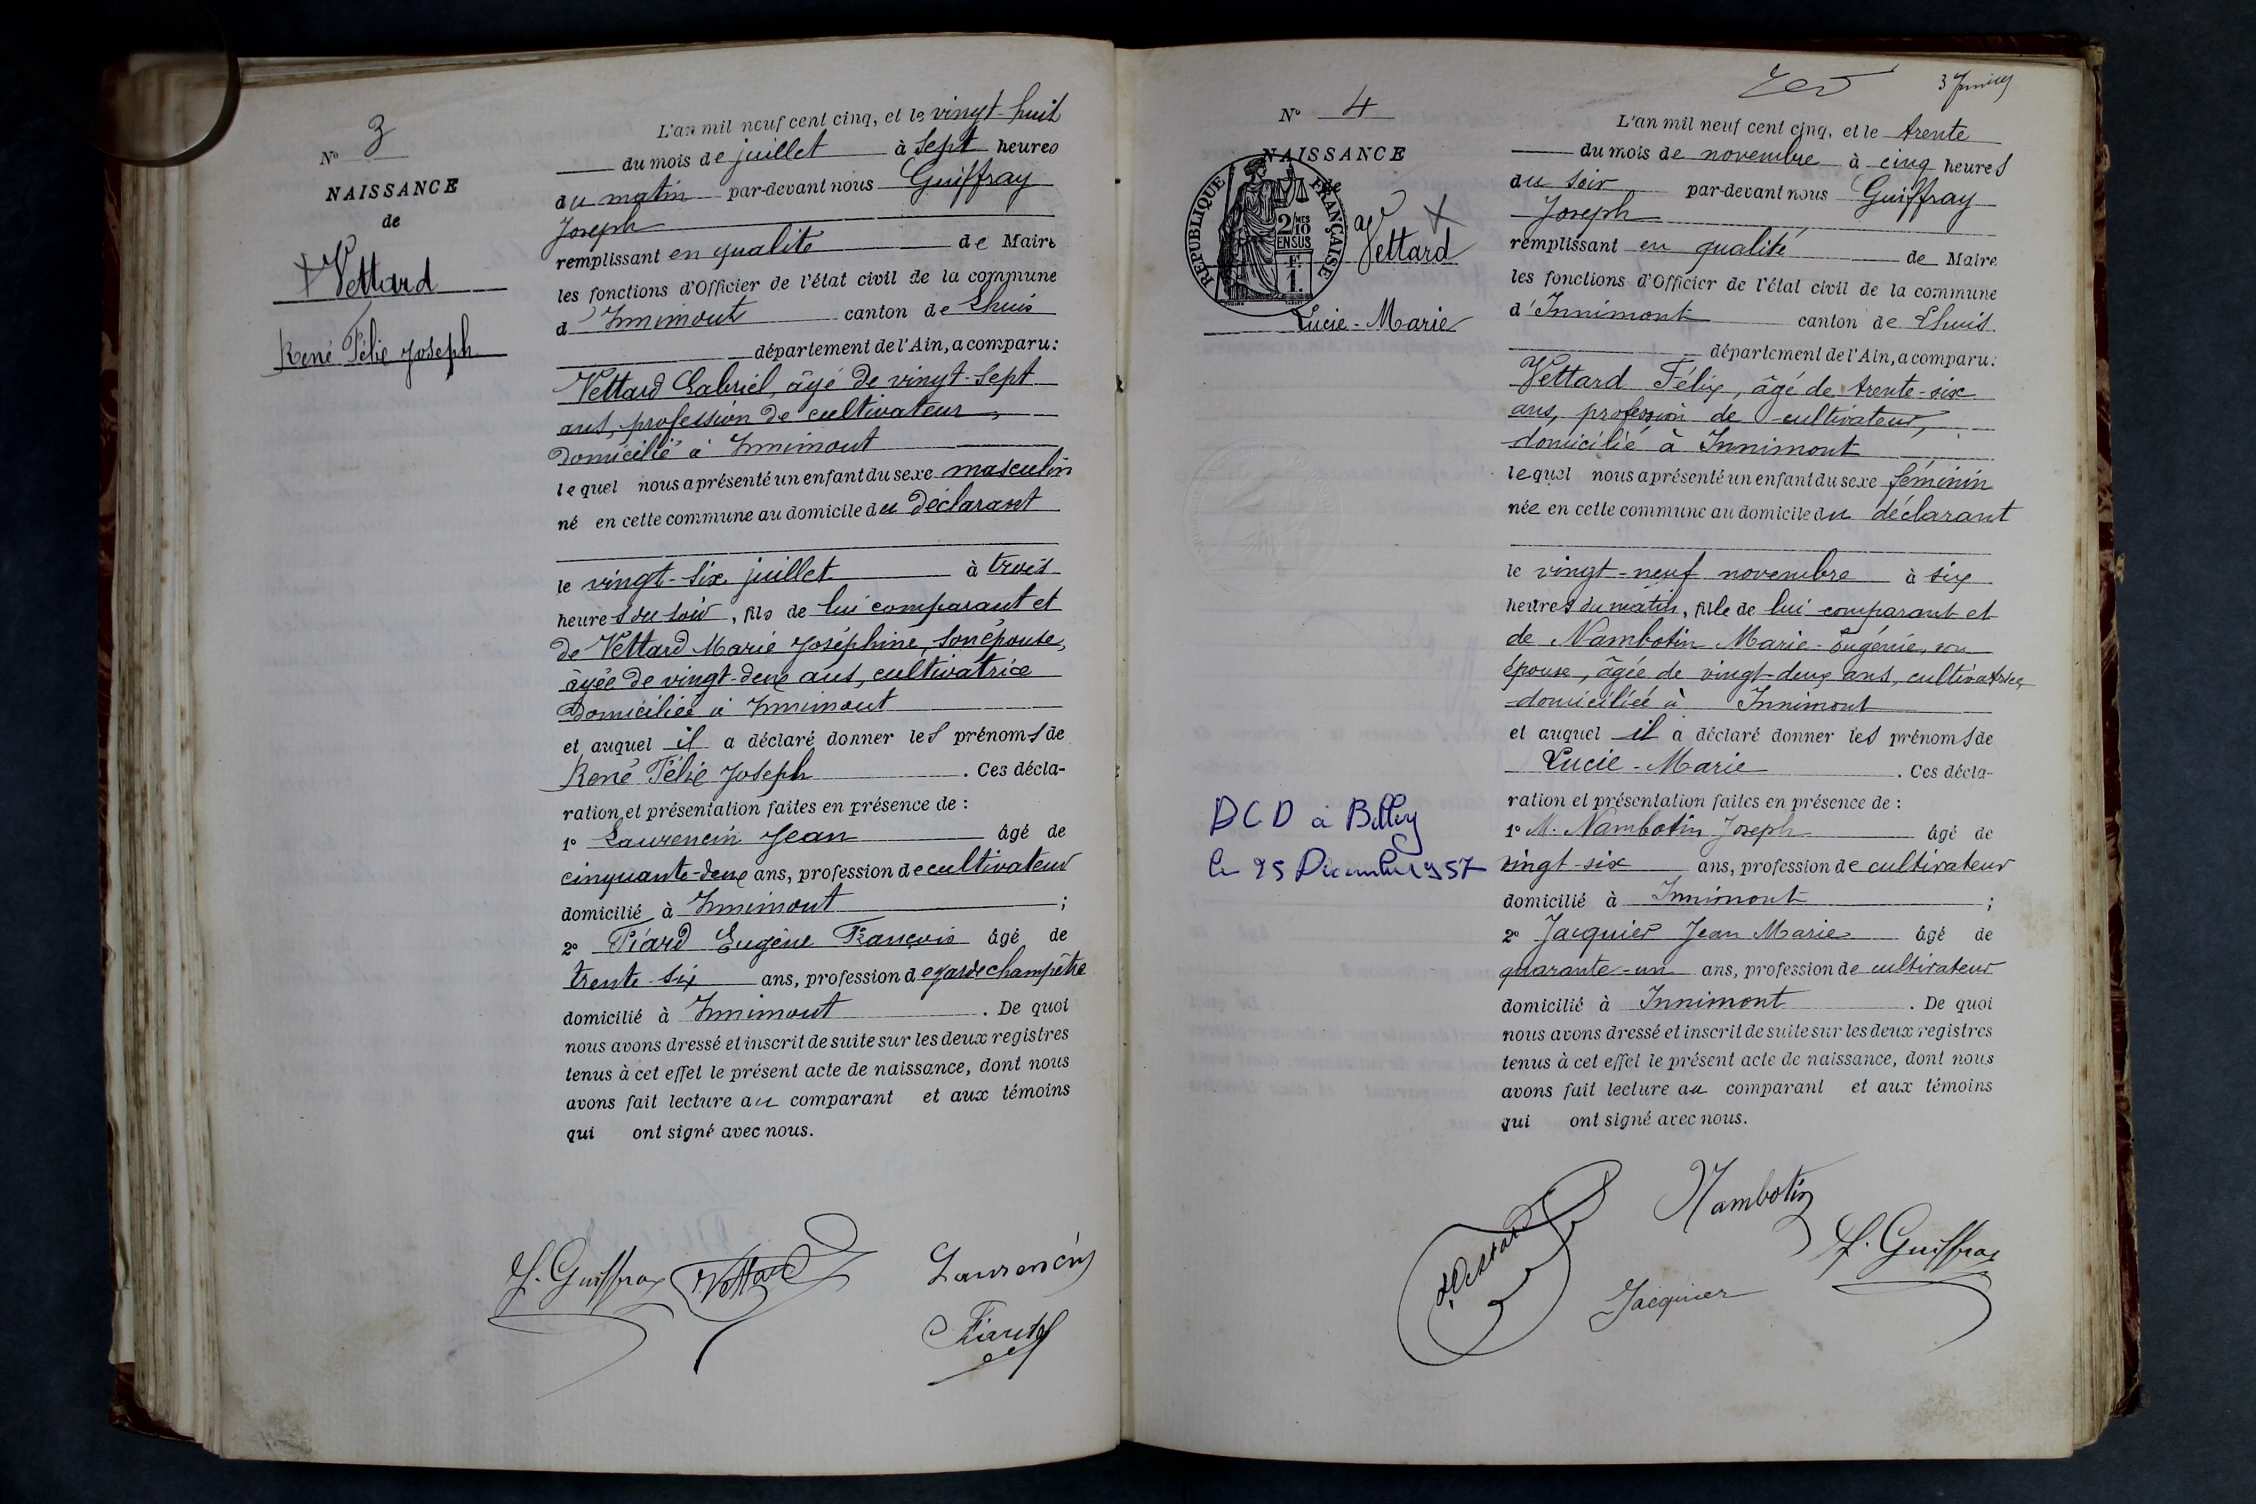 Nº 3
NAISSANCE
de
Vettard
René Félix Joseph
L'an mil neuf cent cinq, et le vingt-huit
du mois de juillet à sept heures
du matin par-devant nous Guiffray
Joseph
remplissant en qualité de Maire
les fonctions d'Officier de l'état civil de la commune
d'Innimont canton de Lhuis
département de l'Ain, a comparu:
Vettard Gabriel, âgé de vingt-sept
ans, profession de cultivateur,
domicilié à Innimont
lequel nous a présenté un enfant du sexe masculin
né en cette commune au domicile du déclarant
le vingt-six juillet à trois
heures du soir, fils de lui comparant et
de Vettard Marie Joséphine, son épouse,
âgée de vingt-deux ans, cultivatrice
domiciliée à Innimont
et auquel il a déclaré donner les prénoms de
René Félix Joseph. Ces décla-
ration et présentation faites en présence de :
1º Laurencin Jean âgé de
cinquante-deux ans, profession de cultivateur
domicilié à Innimont ;
2º Piard Eugène François âgé de
trente-six ans, profession de garde champêtre
domicilié à Innimont. De quoi
nous avons dressé et inscrit de suite sur les deux registres
tenus à cet effet le présent acte de naissance, dont nous
avons fait lecture au comparant et aux témoins
qui ont signé avec nous.
J. Guiffray Vettard Laurencin
Piard
Nº 4
NAISSANCE
de
RÉPUBLIQUE FRANÇAISE
2/10 MES
EN SUS
1 F.
Vettard
Lucie-Marie
DCD à Belley
le 25 Décembre 1957
3 Juillet
L'an mil neuf cent cinq, et le trente
du mois de novembre à cinq heures
du soir par-devant nous Guiffray
Joseph
remplissant en qualité de Maire
les fonctions d'Officier de l'état civil de la commune
d'Innimont canton de Lhuis
département de l'Ain, a comparu:
Vettard Félix, âgé de trente-six
ans, profession de cultivateur,
domicilié à Innimont
lequel nous a présenté un enfant du sexe féminin
née en cette commune au domicile du déclarant
le vingt-neuf novembre à six
heures du matin, fille de lui comparant et
de Nambotin Marie-Eugénie, son
épouse, âgée de vingt-deux ans, cultivatrice,
domiciliée à Innimont
et auquel il a déclaré donner les prénoms de
Lucie-Marie. Ces décla-
ration et présentation faites en présence de :
1º M. Nambotin Joseph âgé de
vingt-six ans, profession de cultivateur
domicilié à Innimont ;
2º Jacquier Jean Marie âgé de
quarante-un ans, profession de cultivateur
domicilié à Innimont. De quoi
nous avons dressé et inscrit de suite sur les deux registres
tenus à cet effet le présent acte de naissance, dont nous
avons fait lecture au comparant et aux témoins
qui ont signé avec nous.
Nambotin
Vettard J. Guiffray
Jacquier